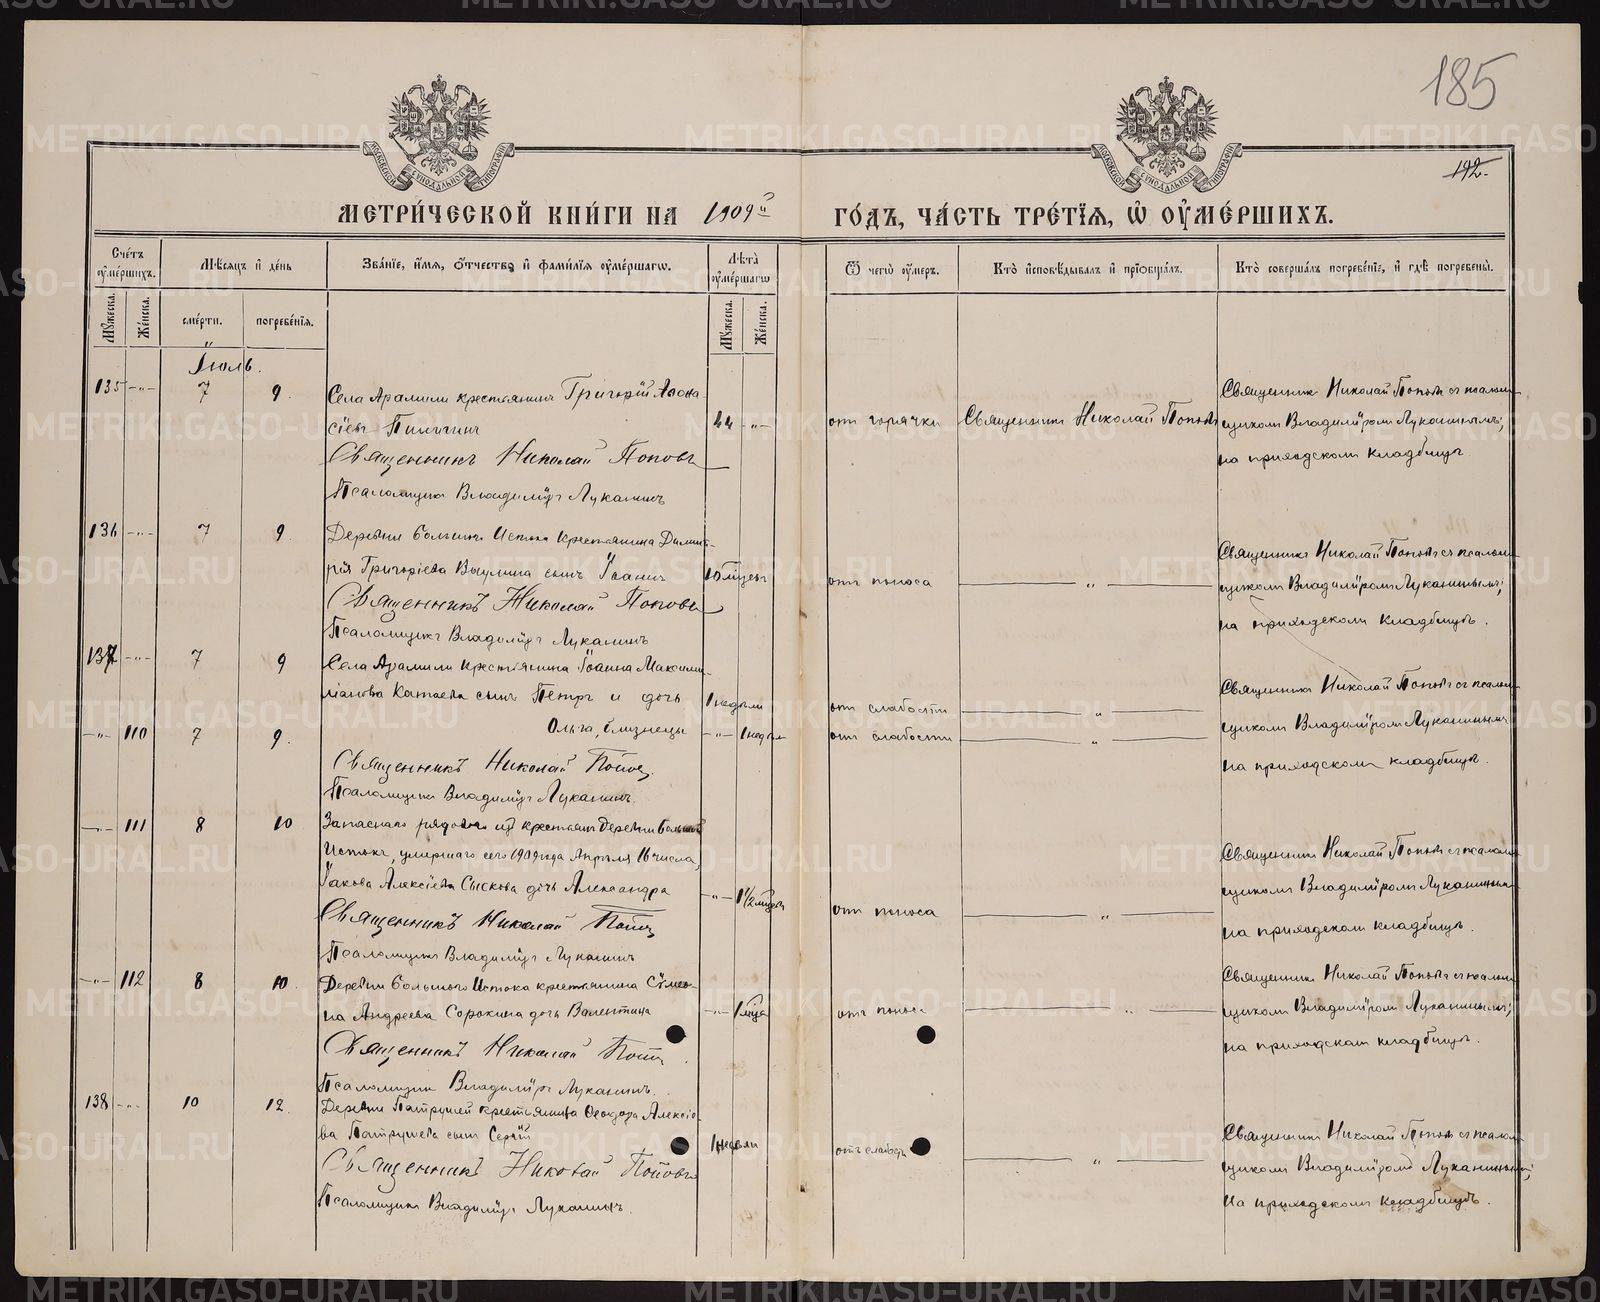 185
192.
МЕТРИ́ЧЕСКОЙ КНИ́ГИ НА 1909й ГО́ДЪ, ЧА́СТЬ ТРЕ́ТЇѦ, Ѡ҆ ОУ҆МЕ́РШИХЪ.
Сче́тъ оу҆ме́ршихъ.
Мꙋ́жеска.
Же́нска.
Мѣ́сѧцъ и҆ де́нь
сме́рти.
погребе́нїѧ.
Зва́нїе, и҆́мѧ, ѻ҆́тчество и҆ фами́лїѧ оу҆ме́ршагѡ.
Лѣ́та оу҆ме́ршагѡ
Мꙋ́жеска.
Же́нска.
Ѿ чегѡ̀ оу҆́меръ.
Кто̀ и҆сповѣ́дывалъ и҆ прїѡбща́лъ.
Кто̀ соверша́лъ погребе́нїе, и҆ гдѣ̀ погребены̀.
Іюль.
135 -"- 7 9.
Села Арамили крестьянинъ Григорій Афона-
сіевъ 44 -"-
Священникъ Николай Поповъ
Псаломщикъ Владиміръ Луканинъ
отъ горячки
Священникъ Николай Поповъ
Священникъ Николай Поповъ съ псалом-
щикомъ Владиміромъ Луканинымъ,
на приходскомъ кладбищѣ.
136 -"- 7 9.
Деревни Большаго Истока крестьянина Димит-
рія Григоріева сынъ Іоаннъ
Священникъ Николай Поповъ
Псаломщикъ Владиміръ Луканинъ
отъ поноса
"
Священникъ Николай Поповъ съ псалом-
щикомъ Владиміромъ Луканинымъ,
на приходскомъ кладбищѣ.
137 -"- 7 9
Села Арамили крестьянина Іоанна Максими-
ліанова Катаева сынъ Петръ и дочь 1 недѣли
-"- 110 7 9.
Ольга, близнецы -"- 1 недѣли
Священникъ Николай Поповъ
Псаломщикъ Владиміръ Луканинъ.
отъ слабости "
отъ слабости "
Священникъ Николай Поповъ съ псалом-
щикомъ Владиміромъ Луканинымъ
на приходскомъ кладбищѣ.
-"- 111 8 10
Запаснаго рядоваго изъ крестьянъ Деревни Большой
Истокъ, умершаго сего 1909 года Апрѣля 16 числа,
Іакова Алексіева Сыскова дочь Александра -"- 1 1/2 мѣсяца
Священникъ Николай Поповъ
Псаломщикъ Владиміръ Луканинъ
отъ поноса
"
Священникъ Николай Поповъ съ псалом-
щикомъ Владиміромъ Луканинымъ
на приходскомъ кладбищѣ.
-"- 112 8 10.
Деревни Большого Истока крестьянина Сѵмео-
на Андреева Сорокина дочь Валентина -"-
Священникъ Николай Поповъ.
Псаломщикъ Владиміръ Луканинъ.
отъ поноса
"
Священникъ Николай Поповъ съ псалом-
щикомъ Владиміромъ Луканинымъ,
на приходскомъ кладбищѣ.
138 -"- 10 12.
Деревни Патрушей крестьянина Ѳеодора Алексіе-
ва Патрушева сынъ Сергій 1 недѣли
Священникъ Николай Поповъ
Псаломщикъ Владиміръ Луканинъ.
отъ слабости
"
Священникъ Николай Поповъ съ псалом-
щикомъ Владиміромъ Луканинымъ,
на приходскомъ кладбищѣ.
METRIKI.GASO-URAL.RU